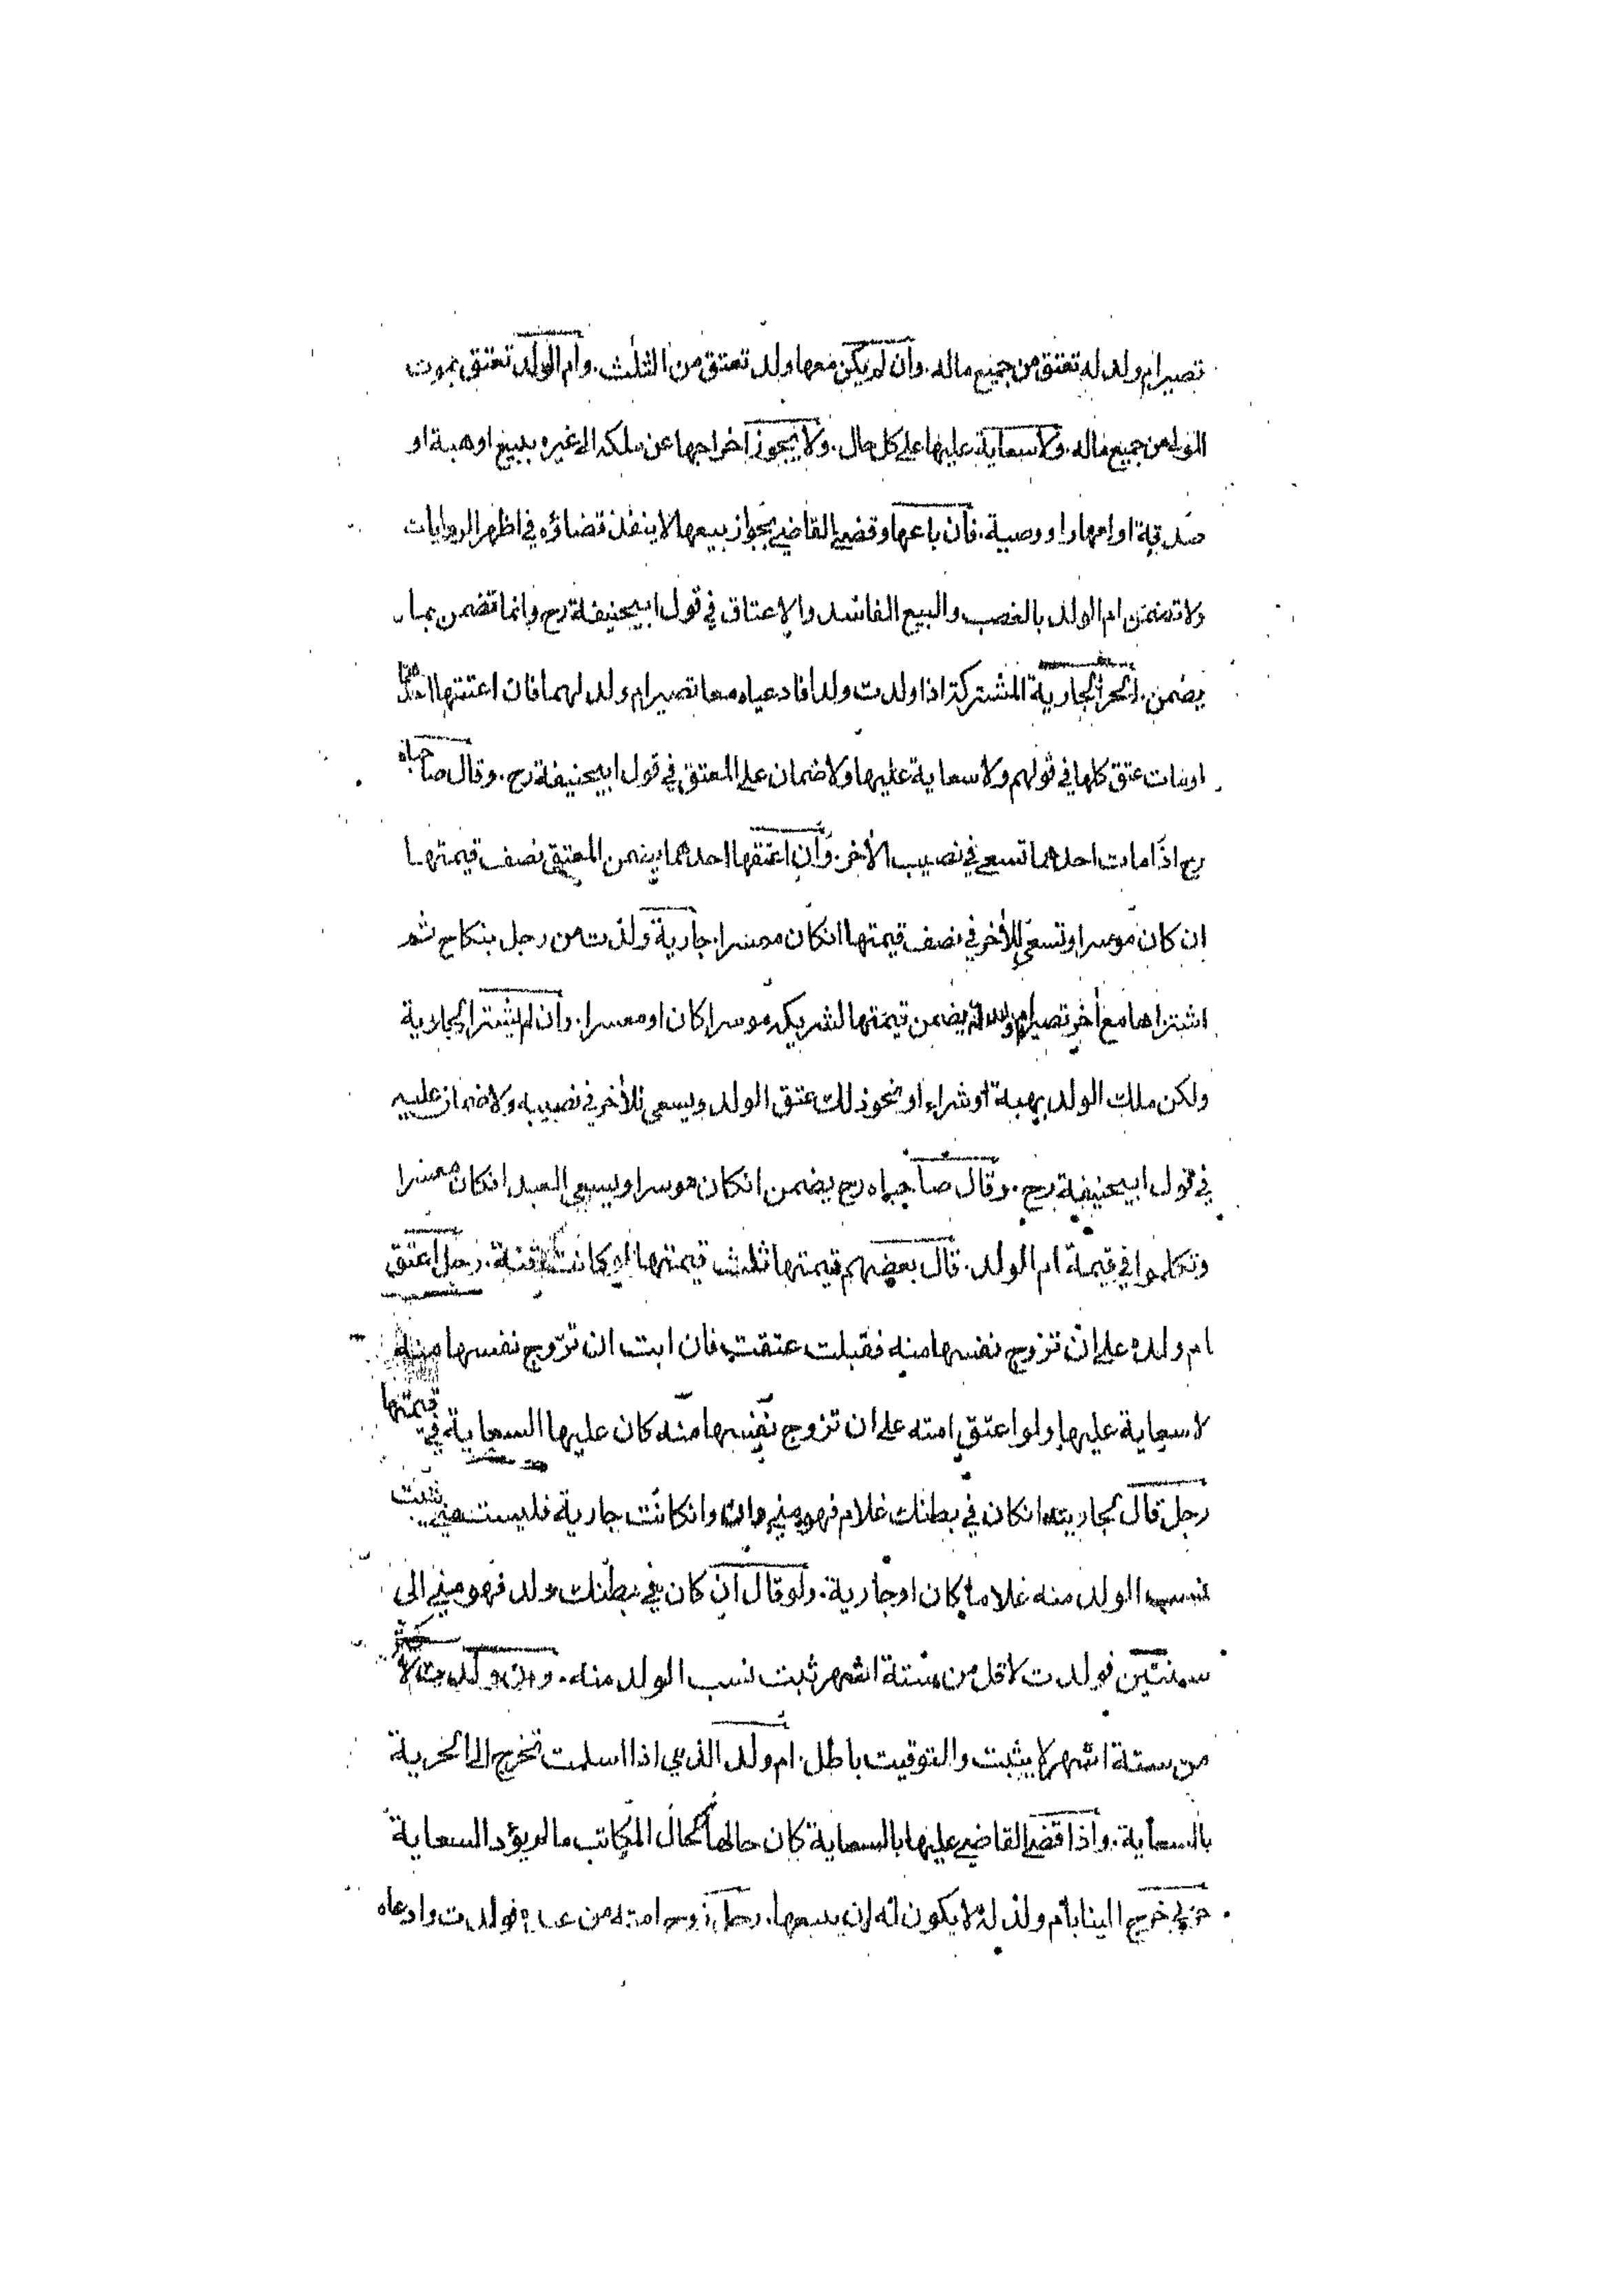 تصير ام ولد له تعتق من جميع ماله. وان لم يكن معها ولد تعتق من الثلث. وام الولد تعتق بموت
المولى من جميع ماله. ولا سعاية عليها على كل حال. ولا يجوز اخراجها عن ملكه الى غيره ببيع او هبة او
صدقة او امهار او وصية. فان باعها وقضى القاضي بجواز بيعها لا ينفذ قضاؤه في اظهر الروايات
ولا تضمن ام الولد بالغصب والبيع الفاسد والاعتاق في قول ابيحنيفة رح وانما تضمن بما
يضمن الحر الجارية المشتركة اذا ولدت ولدا فادعياه معا تصير ام ولد لهما فان اعتقها احدهما
او مات عتق كلها في قولهم ولا سعاية عليها ولا ضمان على المعتق في قول ابيحنيفة رح. وقال صاحباه
رح اذا مات احدهما تسعى في نصيب الأخر. وان اعتقها احدهما يضمن المعتق نصف قيمتها
ان كان موسرا وتسعى للأخر في نصف قيمتها انكان معسرا. جارية ولدت من رجل بنكاح ثم
اشتراها مع أخر تصير ام ولد له يضمن قيمتها لشريكه موسرا كان او معسرا. وان لم يشتر الجارية
ولكن ملك الولد بهبة او شراء او نحو ذلك عتق الولد ويسعى للأخر في نصيبه ولا ضمان عليه
في قول ابيحنيفة رح. وقال صاحباه رح يضمن انكان موسرا ويسعى العبد انكان معسرا
وتكلموا في قيمة ام الولد. قال بعضهم قيمتها ثلث قيمتها لو كانت قنة. رجل اعتق
ام ولده على ان تزوج نفسها منه فقبلت عتقت فان ابت ان تزوج نفسها منه
لا سعاية عليها ولو اعتق امته على ان تزوج نفسها منه كان عليها السعاية في قيمتها
رجل قال لجاريته انكان في بطنك غلام فهو مني وانكانت جارية فليست مني يثبت
نسب الولد منه غلاما كان او جارية. ولو قال ان كان في بطنك ولد فهو مني الى
سنتين فولدت لاقل من ستة اشهر ثبت نسب الولد منه. وان ولدت لاكثر
من ستة اشهر لا يثبت والتوقيت باطل. ام ولد الذمي اذا اسلمت تخرج الى الحرية
بالسعاية. واذا قضى القاضي عليها بالسعاية كان حالها كحال المكاتب ما لم يؤد السعاية
حربي خرج الينا بام ولد له لا يكون له ان يبيعها. رجل زوج امته من عبده فولدت وادعاه